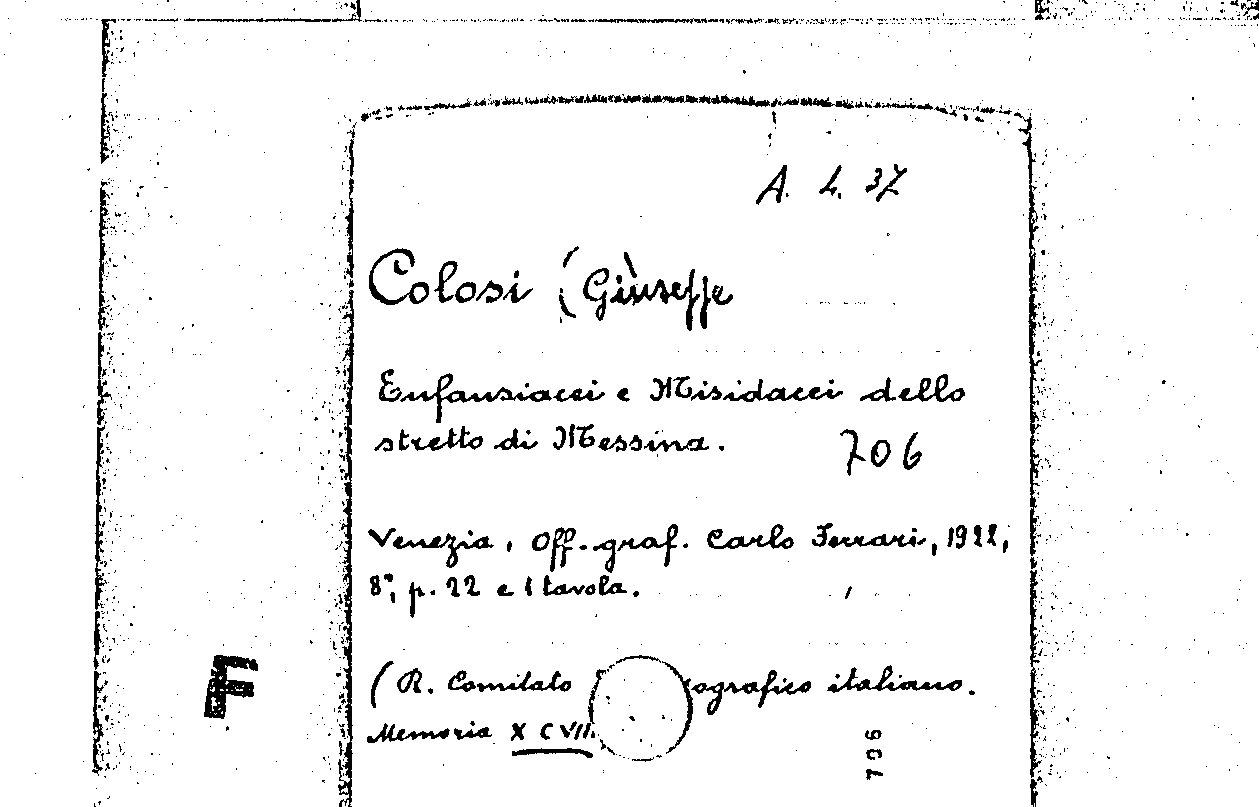 A. 4. 37
Colosi (Giuseppe
Eufausiacei e Misidacei dello
stretto di Messina.
706
Venezia, Off. graf. Carlo Ferrari, 1922,
8°, p. 22 e 1 tavola.
F
(R. Comitato ografico italiano.
Memoria XCVII.
706